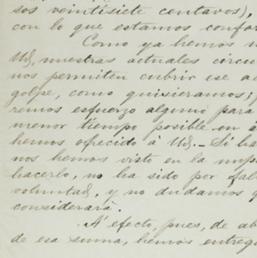 sos veintisiete centavos),
con lo que estamos confor
Como ya hemos m
Ud, nuestras actuales circu
nos permiten cubrir ese a
golpe, como quisieramos; 
remos esfuerzo alguno para
menor tiempo posible en
hemos ofrecido á Ud.— Si ha
nos hemos visto en la imp
hacerlo, no ha sido por fal
voluntad, y no dudamos q
considerará.
A' efecto, pues, de ab
de esa suma, hemos entreg